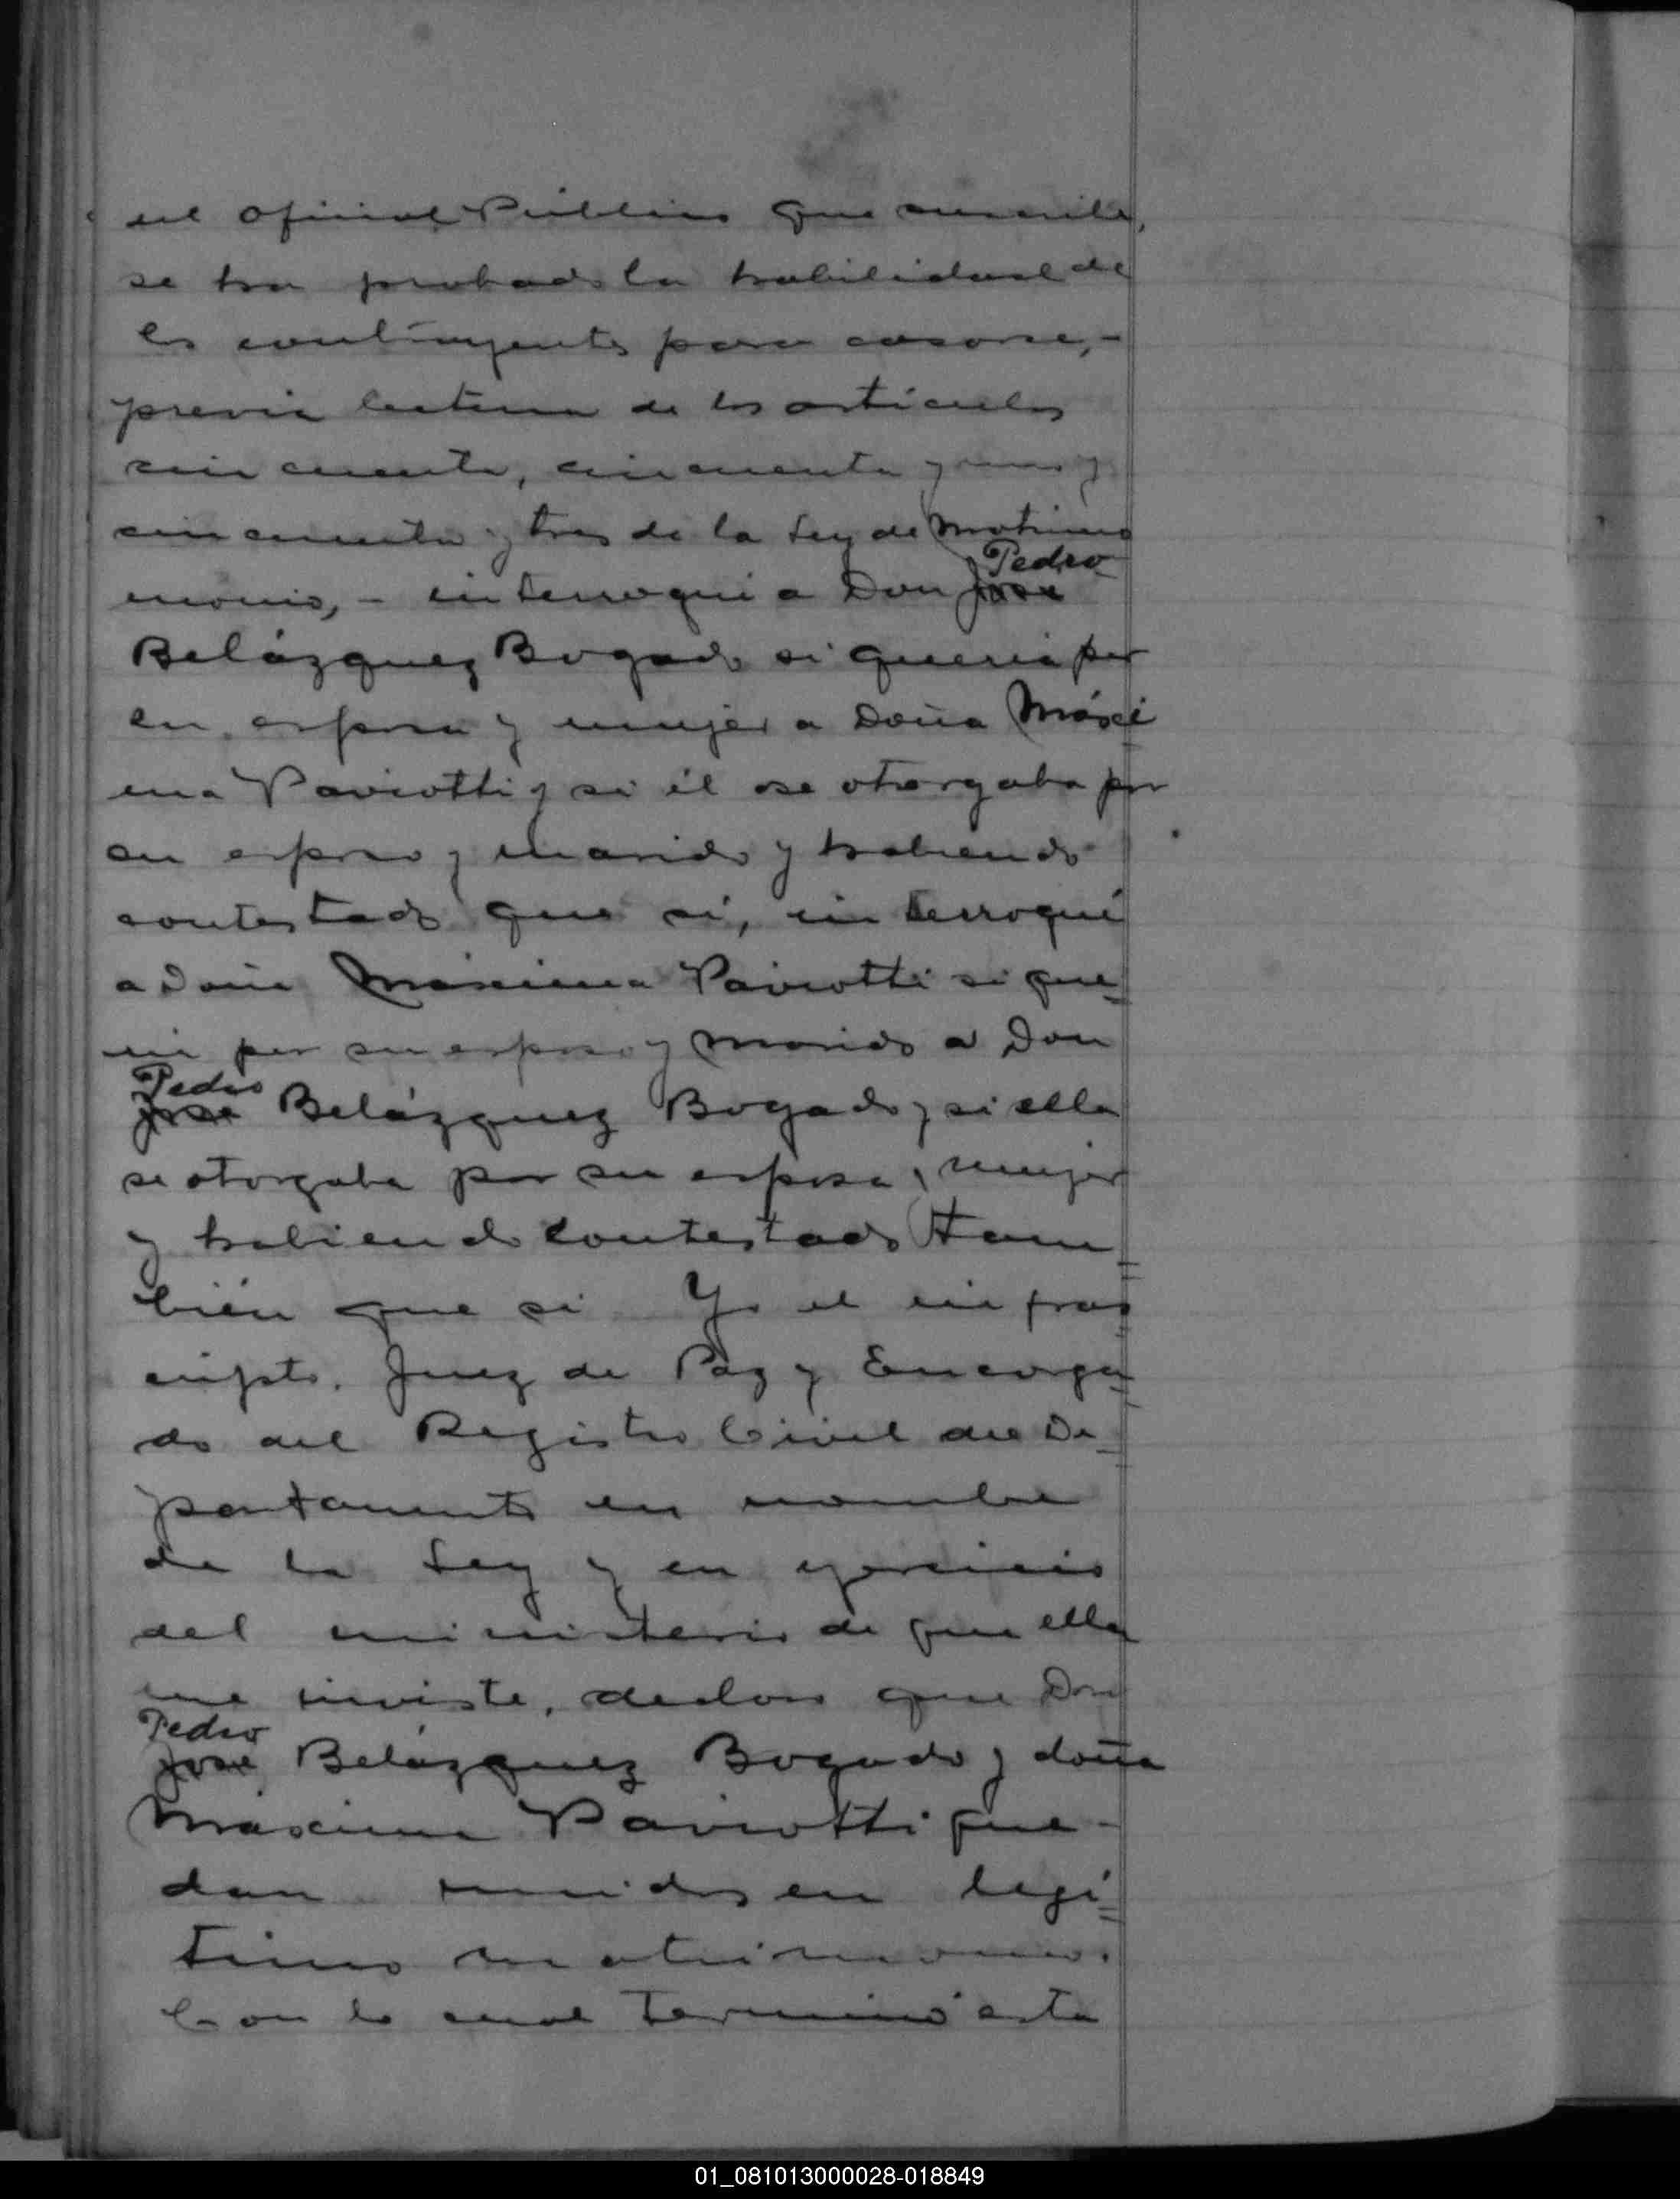 del Oficial Público que suscribe,
se ha probado la habilidad de
los contrayentes para casarse,-
previa lectura de los artículos
cincuenta, cincuenta y uno y
cincuenta y tres de la Ley de Matrimo
Pedro
monio,- interrogué a Don José
Belázquez Bogado si quería por
su esposa y mujer a Doña Máxi
ma Paviotti y si él se otorgaba por
su esposo y marido y habiendo
contestado que sí, interrogué
a Doña Máxima Paviotti si que=
ria por su esposo y marido a Don
Pedro
José Belázquez Bogado y si ella
se otorgaba por su esposa y mujer
y habiendo contestado tam=
bién que si Yo el infras=
cripto, Juez de Paz y Encarga=
do del Registro Civil del De=
partamento en nombre
de la Ley y en ejercicio
del ministerio de que ella
me inviste, declaro que Don
Pedro
José Belázquez Bogado y doña
Máxima Paviotti que-
dan unidos en legí=
timo matrimonio.
Con lo cual terminó esta
01_081013000028-018849